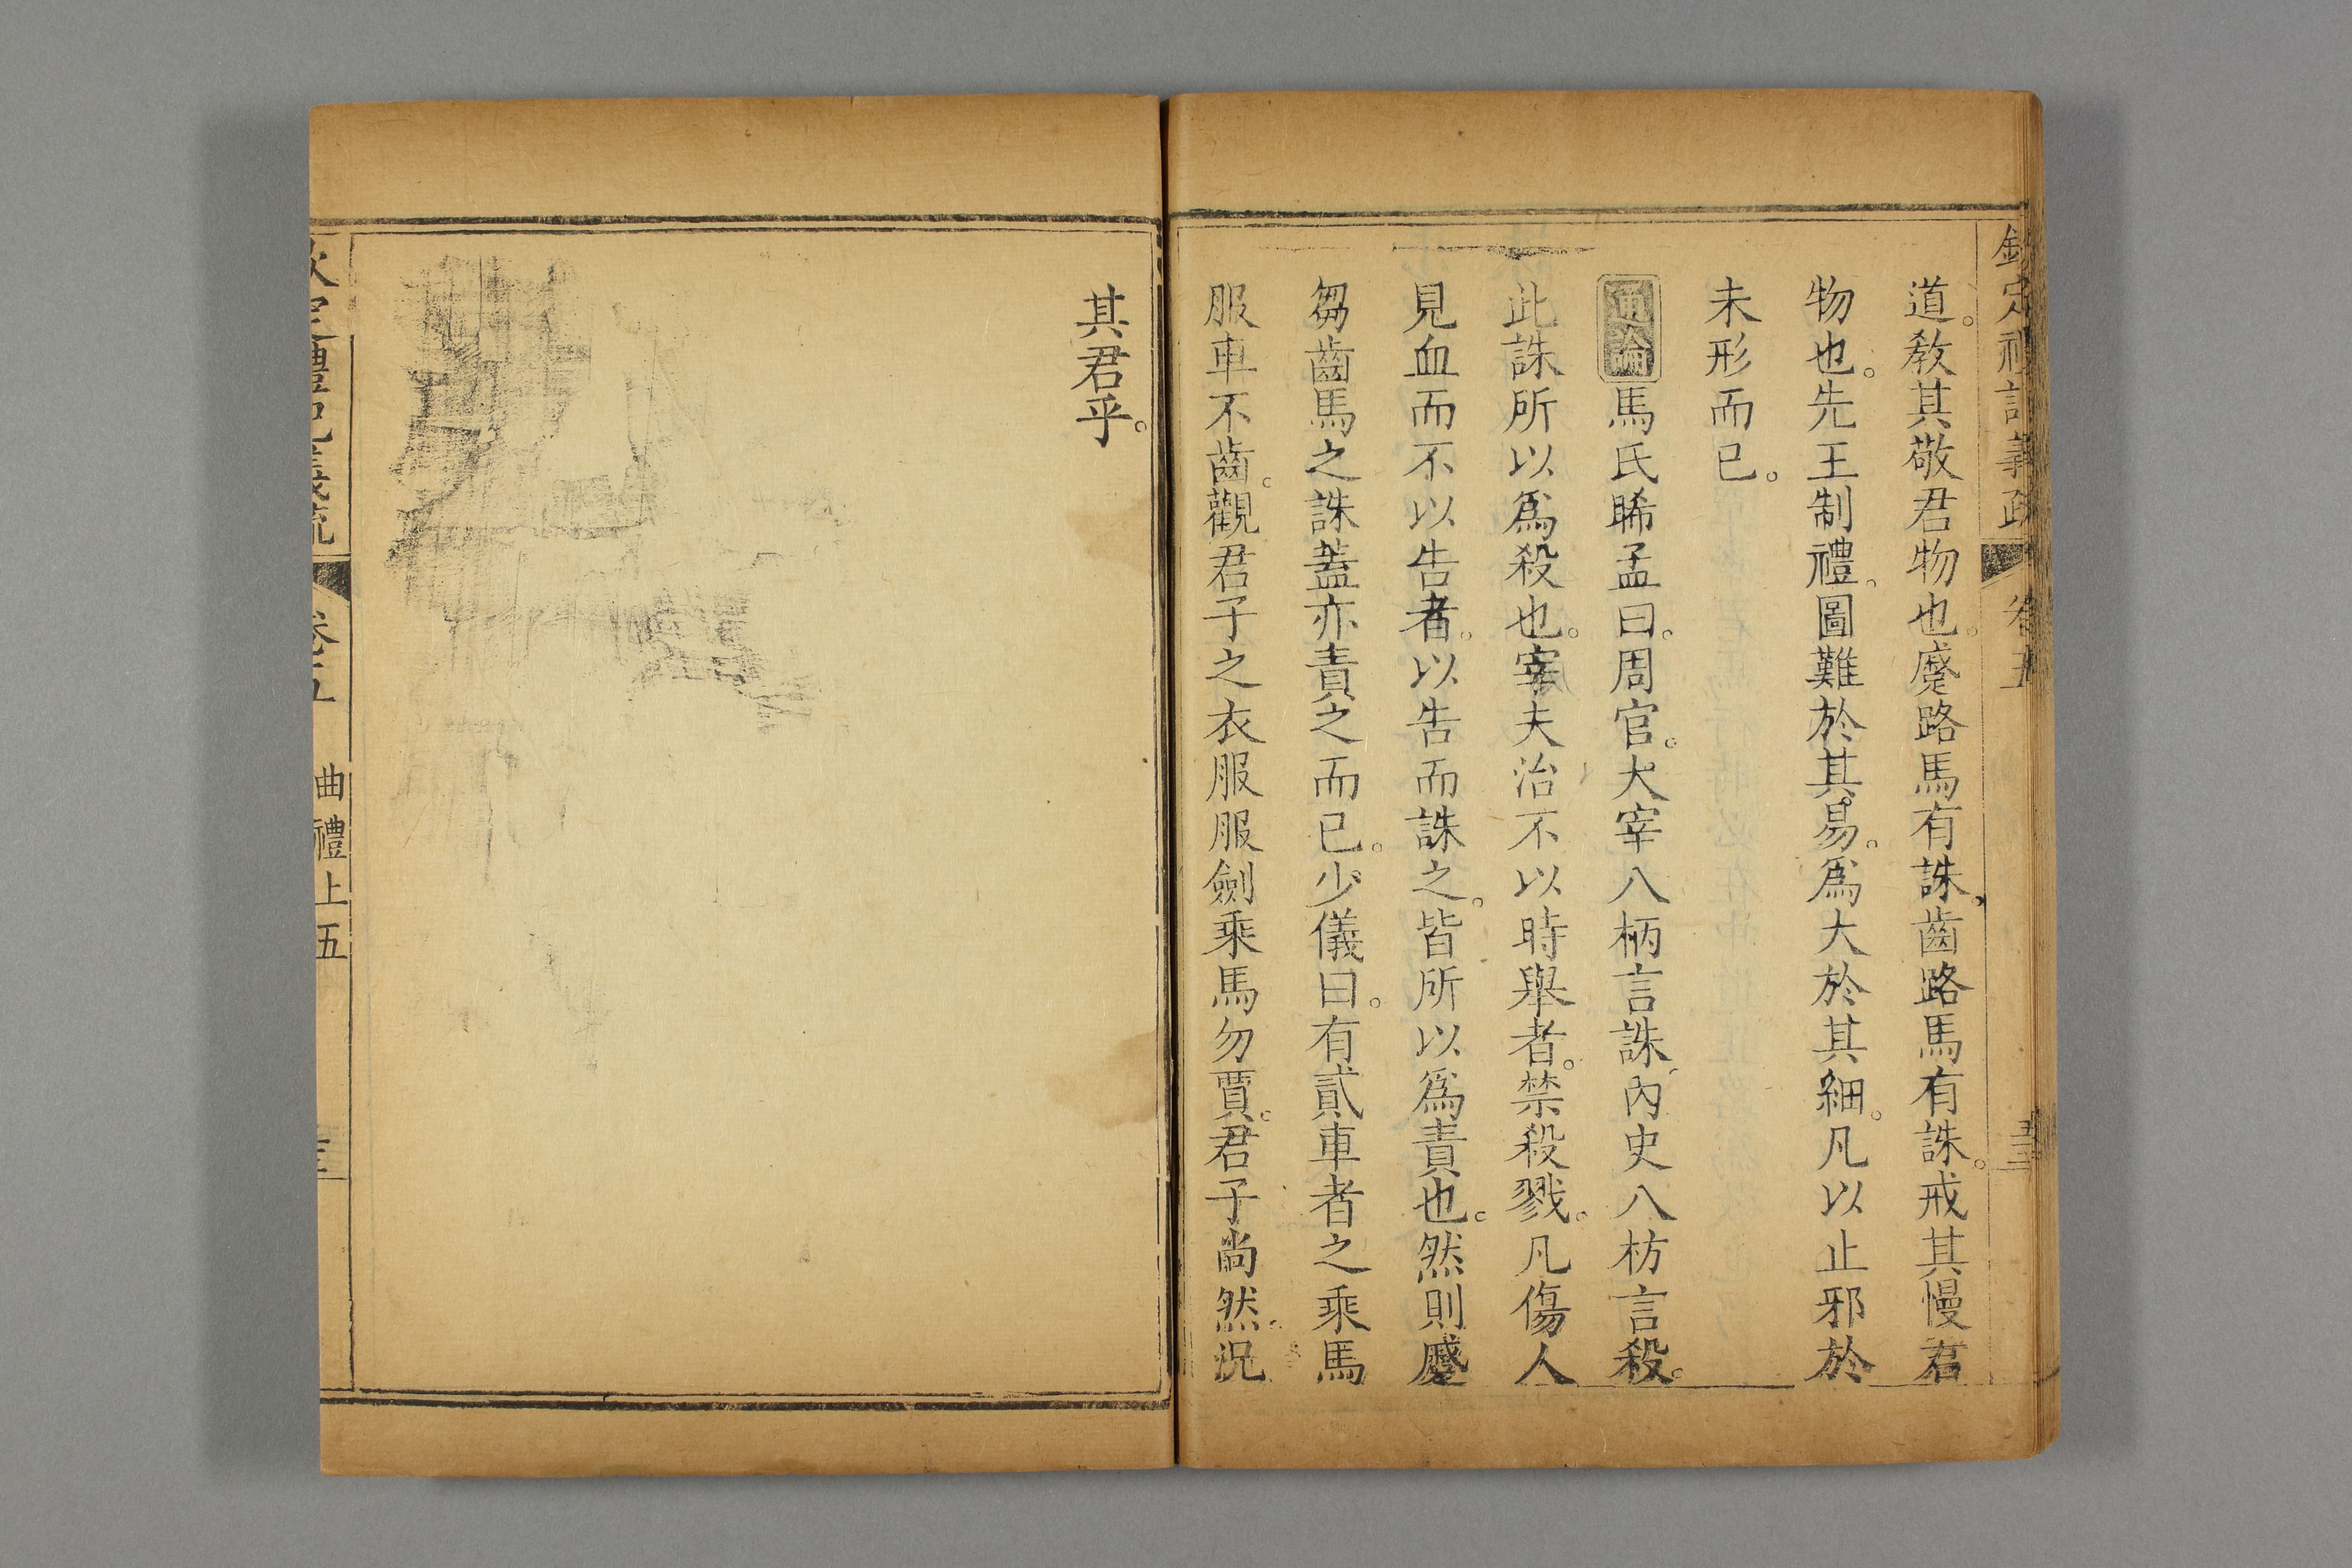 欽定禮記義疏 卷五
道。敎其敬君物也。蹙路馬有誅。齒路馬有誅。戒其慢君
物也。先王制禮。圖難於其易。爲大於其細。凡以止邪於
未形而已。
通論馬氏睎孟曰。周官。大宰八柄言誅、內史八枋言殺。
此誅所以爲殺也。宰夫治不以時舉者。禁殺戮。凡傷人
見血而不以告者。以告而誅之。皆所以爲責也。然則蹙
芻齒馬之誅蓋亦責之而已。少儀曰。有貳車者之乘馬
服車不齒。觀君子之衣服服劍乘馬勿賈。君子尚然。況
其君乎。
欽定禮記義疏 卷五 曲禮上五